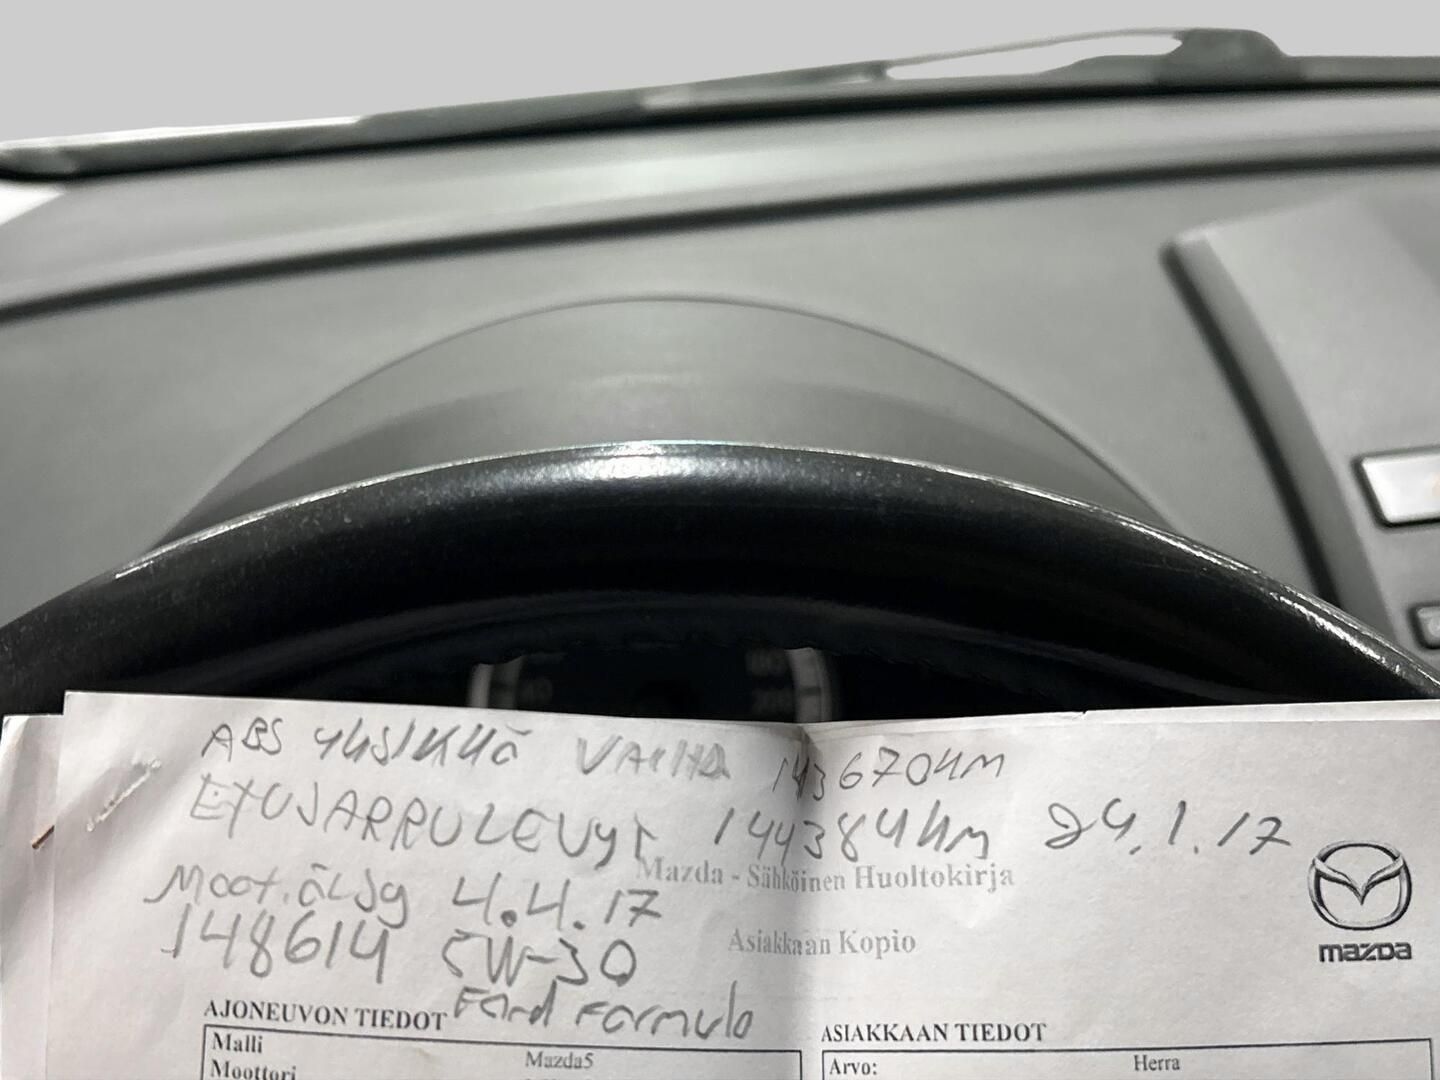 ABS yksikkö VAIHD 143670km
ETUJARRULEVYT 144384km 24.1.17
Mazda - Sähköinen Huoltokirja
Moot.öljy 4.4.17
148614 5W-30
Asiakkaan Kopio
mazda
Ford Formula
AJONEUVON TIEDOT
ASIAKKAAN TIEDOT
Malli Mazda5
Arvo: Herra
Moottori